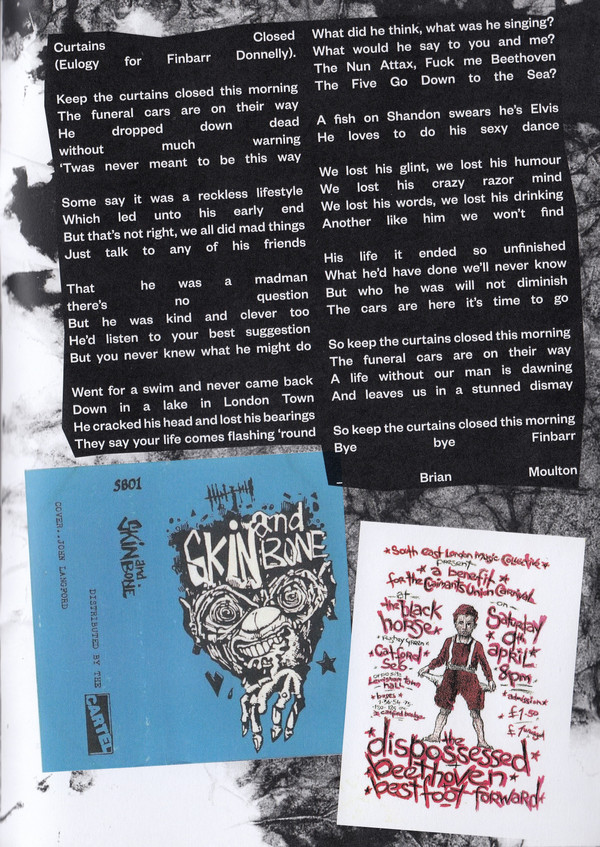 Curtains Closed
(Eulogy for Finbarr Donnelly).
Keep the curtains closed this morning
The funeral cars are on their way
He dropped down dead
without much warning
‘Twas never meant to be this way
Some say it was a reckless lifestyle
Which led unto his early end
But that’s not right, we all did mad things
Just talk to any of his friends
That he was a madman
there’s no question
But he was kind and clever too
He’d listen to your best suggestion
But you never knew what he might do
Went for a swim and never came back
Down in a lake in London Town
He cracked his head and lost his bearings
They say your life comes flashing ‘round
What did he think, what was he singing?
What would he say to you and me?
The Nun Attax, Fuck me Beethoven
The Five Go Down to the Sea?
A fish on Shandon swears he’s Elvis
He loves to do his sexy dance
We lost his glint, we lost his humour
We lost his crazy razor mind
We lost his words, we lost his drinking
Another like him we won’t find
His life it ended so unfinished
What he’d have done we’ll never know
But who he was will not diminish
The cars are here it’s time to go
So keep the curtains closed this morning
The funeral cars are on their way
A life without our man is dawning
And leaves us in a stunned dismay
So keep the curtains closed this morning
Bye bye Finbarr
_ Brian Moulton
SB01
SKIN and BONE
COVER: JOHN LANGFORD
DISTRIBUTED BY THE
CARTEL
SKIN and BONE
South east London Music Collective
present
a benefit
for the Claimants Union Carnival
at
the black
horse
Rushey Green
Catford
SE6
opposite
lewisham town
hall
buses
on
Saturday
9th
april
8pm
admission
£1.50
the
dispossessed
beethoven
best foot forward